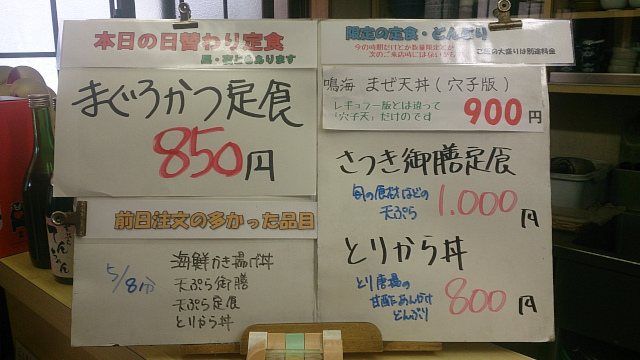 本日の日替わり定食
昼・夜ともあります
まぐろかつ定食
850円
前日注文の多かった品目
5/8分
海鮮かき揚げ丼
天ぷら御膳
天ぷら定食
とりから丼
限定の定食・どんぶり
今の時期だけとか数量限定とか
次のご来店時にはないかも
ご飯の大盛りは別途料金
鳴海 まぜ天丼(穴子版)
レギュラー版とは違って
「穴子天」だけのです
900円
さつき御膳定食
旬の食材などの
天ぷら
1.000円
とりから丼
とり唐揚の
甘酢あんかけ
どんぶり
800円